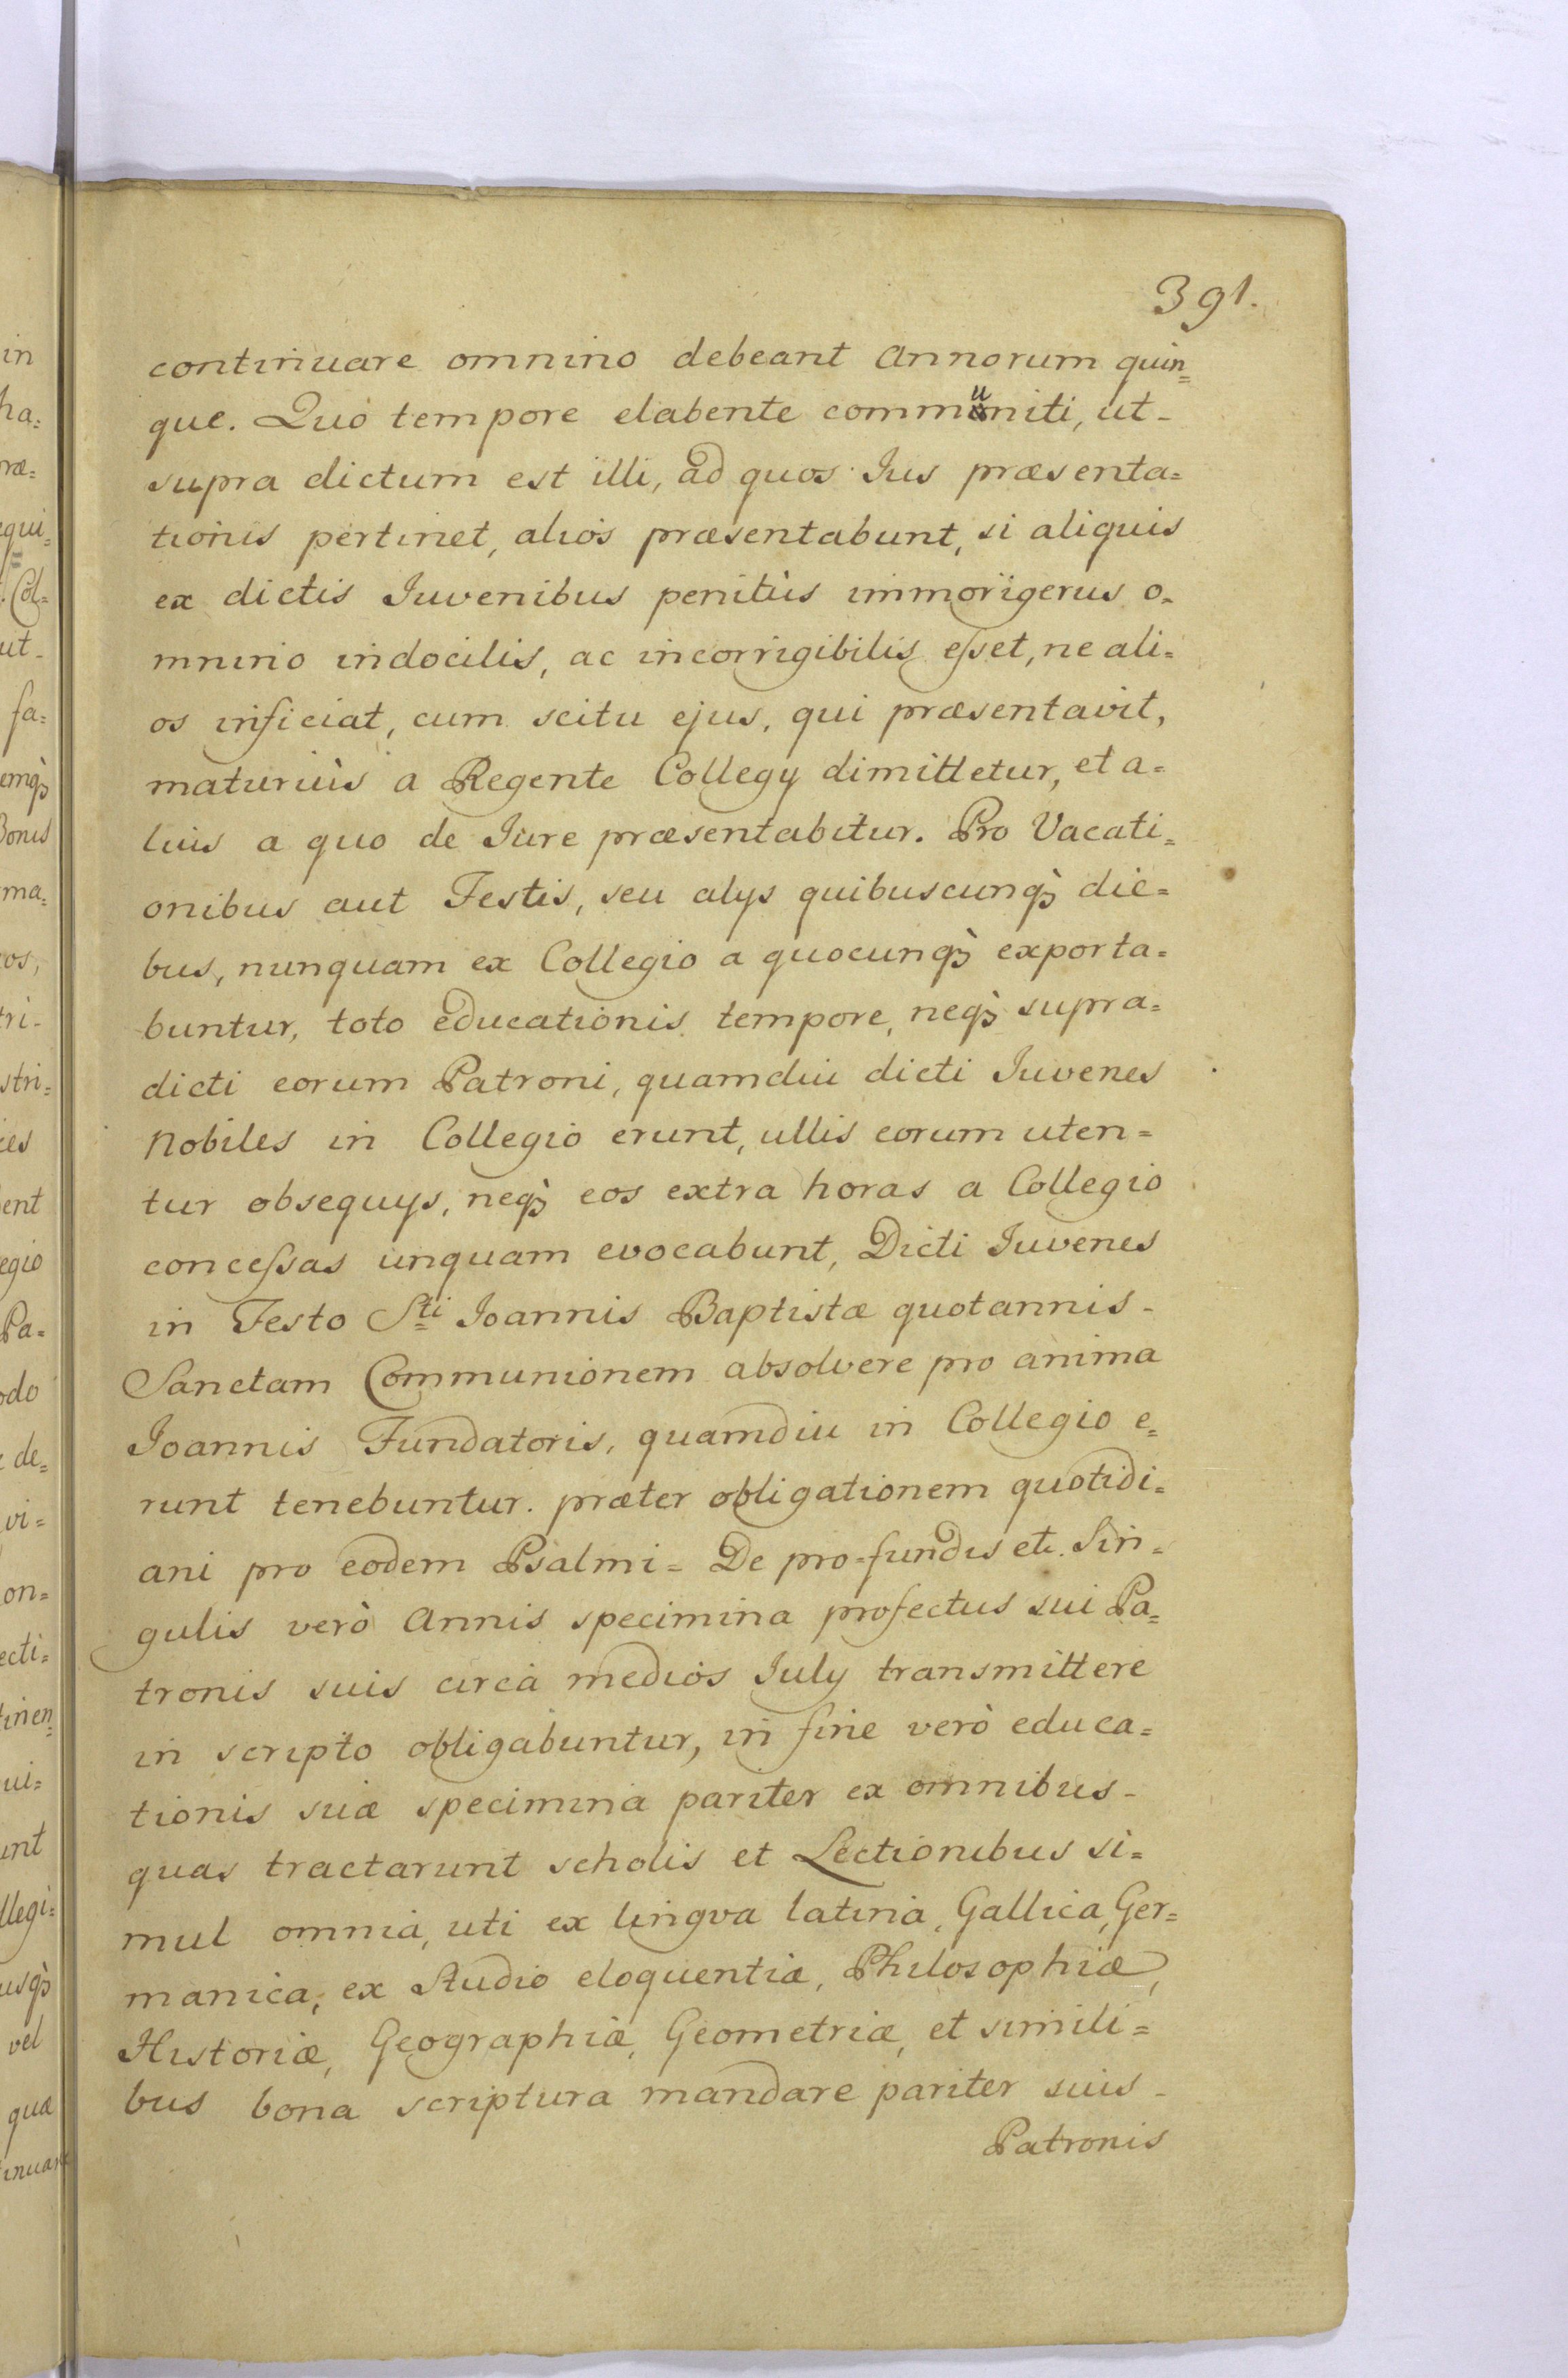 391.
continuare omnino debeant Annorum quin=
que. Quo tempore elabente communiti, ut-
supra dictum est illi, ad quos Ius præsenta=
tionis pertinet, alios præsentabunt, si aliquis
ex dictis Iuvenibus penitùs immorigerus o=
mnino indocilis, ac incorrigibilis esset, ne ali=
os inficiat, cum scitu ejus, qui præsentavit,
maturiùs a Regente Collegy dimittetur, et a=
lius a quo de Iure præsentabitur. Pro Vacati=
onibus aut Festis, seu alys quibuscunq3 die=
bus, nunquam ex Collegio a quocunq3 exporta=
buntur, toto educationis tempore, neq3 supra=
dicti eorum Patroni, quamdiu dicti Iuvenes
Nobiles in Collegio erunt, ullis eorum uten=
tur obsequys, neq3 eos extra horas a Collegio
concessas unquam evocabunt, Dicti Iuvenes
in Festo Sti Ioannis Baptistæ quotannis-
Sanctam Communionem absolvere pro anima
Ioannis Fundatoris, quamdiu in Collegio e=
runt tenebuntur. præter obligationem quotidi=
ani pro eodem Psalmi= De pro=fundis etc. Sin=
gulis verò Annis specimina profectus sui Pa=
tronis suis circa medios July transmittere
in scripto obligabuntur, in fine verò educa=
tionis suæ specimina pariter ex omnibus-
quas tractarunt scholis et Lectionibus si=
mul omnia, uti ex lingva latina, Gallica, Ger=
manica, ex Studio eloquentiæ, Philosophiæ,
Historiæ, Geographiæ, Geometriæ, et simili=
bus bona scriptura mandare pariter suis-
Patronis
in
ha=
ræ=
equi=
Col=
ut-
fa=
emq3
Bonis
ma=
eos,
tri-
stri=
ies
ent
egio
Pa=
odo
de=
vi=
on=
ecti=
tinen=
ui=
unt
llegi=
usq3
vel
quæ
tinuare